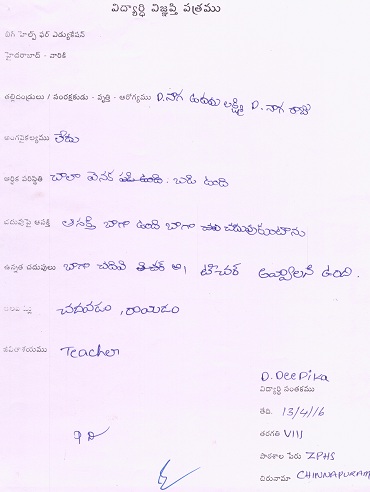 విద్యార్థి విజ్ఞప్తి పత్రము
హెల్ప్ ఫర్ ఎడ్యుకేషన్
హైదరాబాద్ -
తల్లిదండ్రులు / సంరక్షకుడు - వృత్తి - ఆరోగ్యము D. నాగ లక్ష్మి D. నాగ రాజు
అంగవైకల్యము లేదు
ఆర్థిక పరిస్థితి చాలా వెనక బడి ఉంది
చదువుపై ఆసక్తి ఆసక్తి బాగా ఉంది బాగా చదువుకుంటాను
ఉన్నత చదువులు బాగా చదివి టీచర్ అవ్వాలని ఉంది.
చదవడం, రాయడం
జీవితాశయము Teacher
D. Deepika
విద్యార్థి సంతకము
తేది. 13/4/16
తరగతి VIII
పాఠశాల పేరు ZPHS
చిరునామా CHINNAPURAM